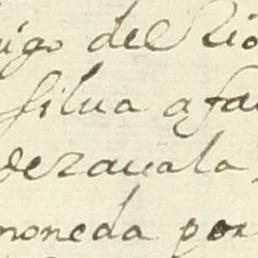 del Rio
silua a fa
dezauala
moneda por